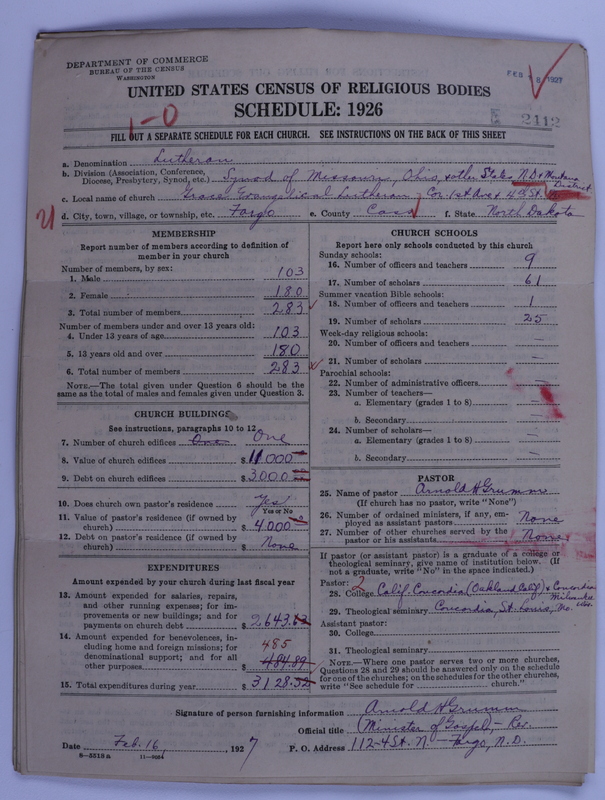 DEPARTMENT OF COMMERCE
BUREAU OF THE CENSUS
WASHINGTON
FEB 18 1927
UNITED STATES CENSUS OF RELIGIOUS BODIES
SCHEDULE: 1926
1-0
2112
FILL OUT A SEPARATE SCHEDULE FOR EACH CHURCH. SEE INSTRUCTIONS ON THE BACK OF THIS SHEET
a. Denomination Lutheran
b. Division (Association, Conference, Diocese, Presbytery, Synod, etc.) Synod of Missouri, Ohio, & other States N.D & Montana District
c. Local name of church Grace Evangelical Lutheran, Cor. 1st Ave & 4th St.
d. City, town, village, or township, etc. Fargo e. County Cass f. State North Dakota
MEMBERSHIP
Report number of members according to definition of
member in your church
Number of members, by sex:
1. Male 103
2. Female 180
3. Total number of members 283
Number of members under and over 13 years old:
4. Under 13 years of age 103
5. 13 years old and over 180
6. Total number of members 283
NOTE.—The total given under Question 6 should be the
same as the total of males and females given under Question 3.
CHURCH BUILDINGS
See instructions, paragraphs 10 to 12
7. Number of church edifices One One
8. Value of church edifices $ 11000
9. Debt on church edifices $ 3000
10. Does church own pastor's residence Yes
Yes or No
11. Value of pastor's residence (if owned by
church) $ 4.000
12. Debt on pastor's residence (if owned by
church) $ None
EXPENDITURES
Amount expended by your church during last fiscal year
13. Amount expended for salaries, repairs,
and other running expenses; for im-
provements or new buildings; and for
payments on church debt $ 2643.
14. Amount expended for benevolences, in-
cluding home and foreign missions; for
denominational support; and for all
other purposes $ 484.89 485
15. Total expenditures during year $ 3128.
CHURCH SCHOOLS
Report here only schools conducted by this church
Sunday schools:
16. Number of officers and teachers 9
17. Number of scholars 61
Summer vacation Bible schools:
18. Number of officers and teachers 1
19. Number of scholars 25
Week-day religious schools:
20. Number of officers and teachers —
21. Number of scholars —
Parochial schools:
22. Number of administrative officers —
23. Number of teachers—
a. Elementary (grades 1 to 8) —
b. Secondary —
24. Number of scholars—
a. Elementary (grades 1 to 8) —
b. Secondary —
PASTOR
25. Name of pastor Arnold H Grumm
(If church has no pastor, write "None")
26. Number of ordained ministers, if any, em-
ployed as assistant pastors None
27. Number of other churches served by the
pastor or his assistants None
If pastor (or assistant pastor) is a graduate of a college or
theological seminary, give name of institution below. (If
not a graduate, write "No" in the space indicated.)
Pastor: 2
28. College Calif. Concordia (Oakland Calif) & Concordia Milwaukee Wis.
29. Theological seminary Concordia, St. Louis, Mo.
Assistant pastor:
30. College
31. Theological seminary
NOTE.—Where one pastor serves two or more churches,
Questions 28 and 29 should be answered only on the schedule
for one of the churches; on the schedules for the other churches,
write "See schedule for church."
Signature of person furnishing information Arnold H Grumm
Official title Minister of Gospel, - Rev.
Date Feb. 16, 1927 P. O. Address 112-4 St. N. - Fargo, N.D.
8-5518a 11-8094